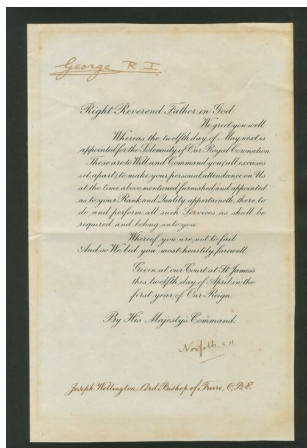 George R.I.
Right Reverend Father in God
We greet you well
Whereas the twelfth day of May next is
appointed for the Solemnity of Our Royal Coronation
These are to Will and Command you (all excuses
set apart) to make your personal attendance on Us
at the time above mentioned furnished and appointed
as to your Rank and Quality appertaineth there to
do and perform all such Services as shall be
required and belong unto you
Whereof you are not to fail
And so We bid you most heartily farewell
Given at our Court at St James's
this twelfth day of April in the
first year of Our Reign
By His Majesty's Command
Norfolk E.M.
Joseph Wellington, Lord Bishop of Truro, C.B.E.